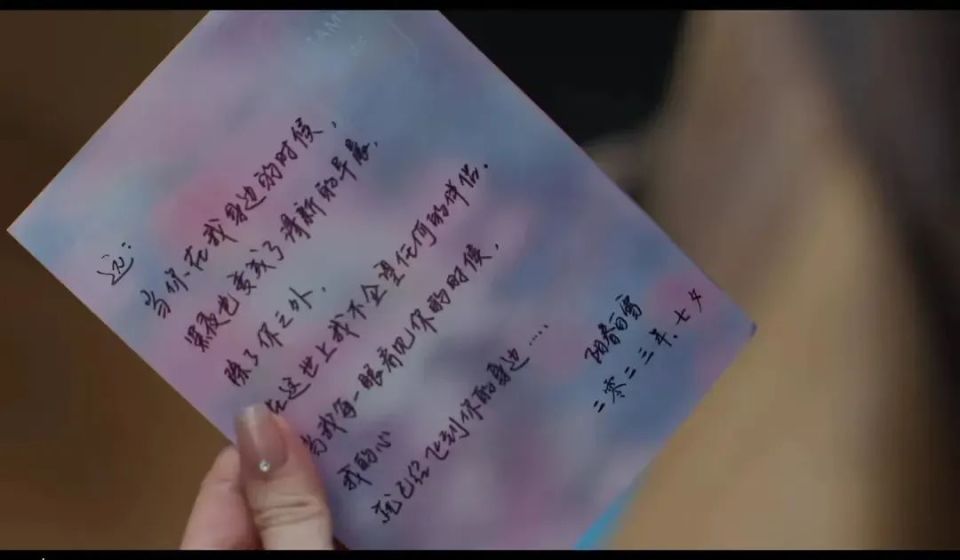 远:
当你在我身边的时候,
黑夜也变成了清新的早晨.
除了你之外,
在这世上我不企望任何的伴侣.
当我每一眼看见你的时候,
我的心
就已经飞到你的身边……
阳春白雪
二零二三年.七夕